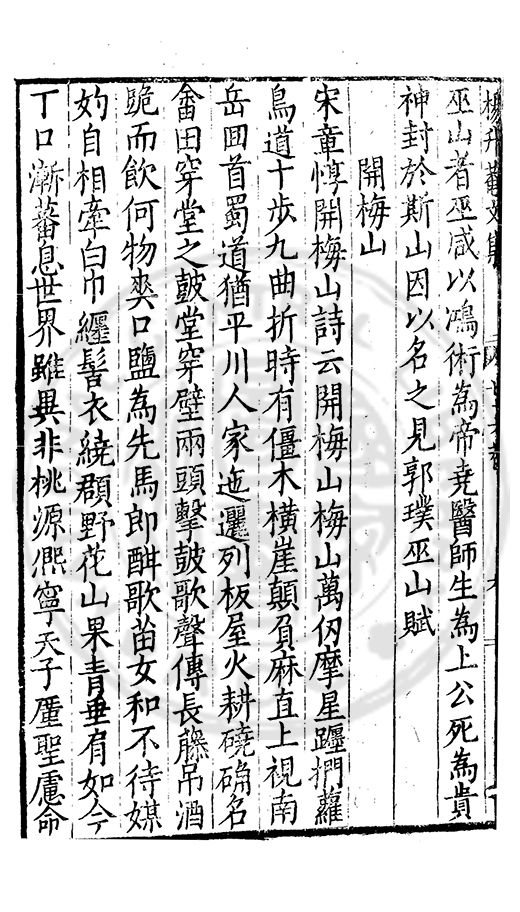 楊升菴文集
巫山者巫咸以鴻術為帝堯醫師生為上公死為貴
神封於斯山因以名之見郭璞巫山賦
開梅山
宋章惇開梅山詩云開梅山梅山萬仞摩星躔捫蘿
鳥道十步九曲折時有僵木橫崖顛負麻直上視南
岳回首蜀道猶平川人家迤邐列板屋火耕磽确名
畬田穿堂之鼓堂穿壁兩頭擊鼓歌聲傳長藤吊酒
跪而飲何物爽口鹽為先馬郎酣歌苗女和不待媒
妁自相牽白巾纏髻衣繞䙱野花山果青垂肩如今
丁口漸蕃息世界雖異非桃源熙寧天子厪聖慮命